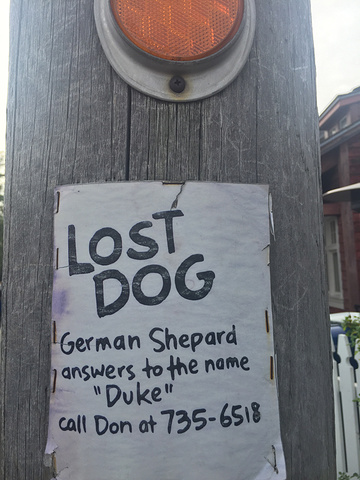 LOST
DOG
German Shepard
answers to the name
"Duke"
call Don at 735-6518